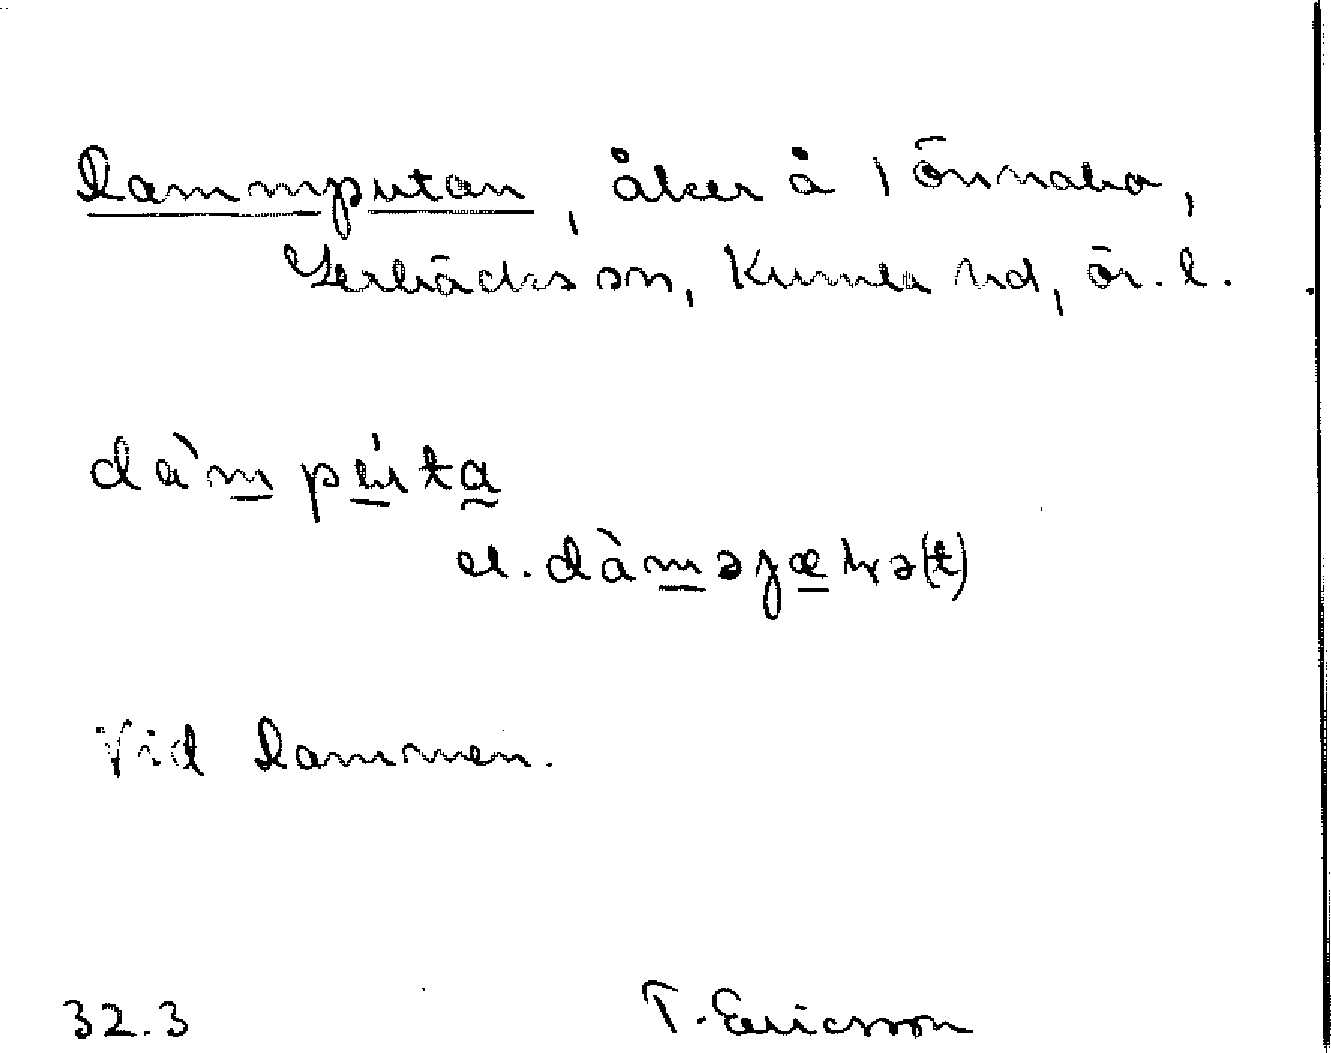 Dammputan, åker å Tönnabo,
Yxhults sn, Kumla hd, ör. l.
dàm pùta
el. dàməjæɽə(t)
Vid Dammen.
32.3 T. Ericsson